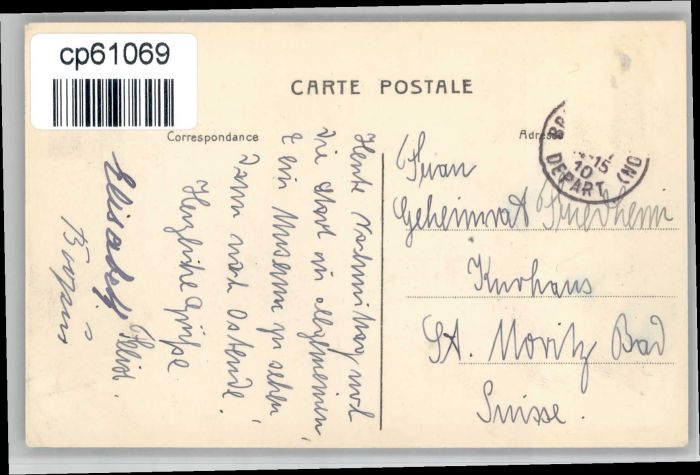 cp61069
CARTE POSTALE
Correspondance
Adresse
Heute Nachmittag mal
die Stadt im allgemeinen,
& ein Museum zu sehen,
dann nach Ostende.
Herzliche Grüße
Elisabeth
Frau
Geheimrat Friedheim
Kurhaus
St. Moritz Bad
Suisse.
15
10
DEPART (NO